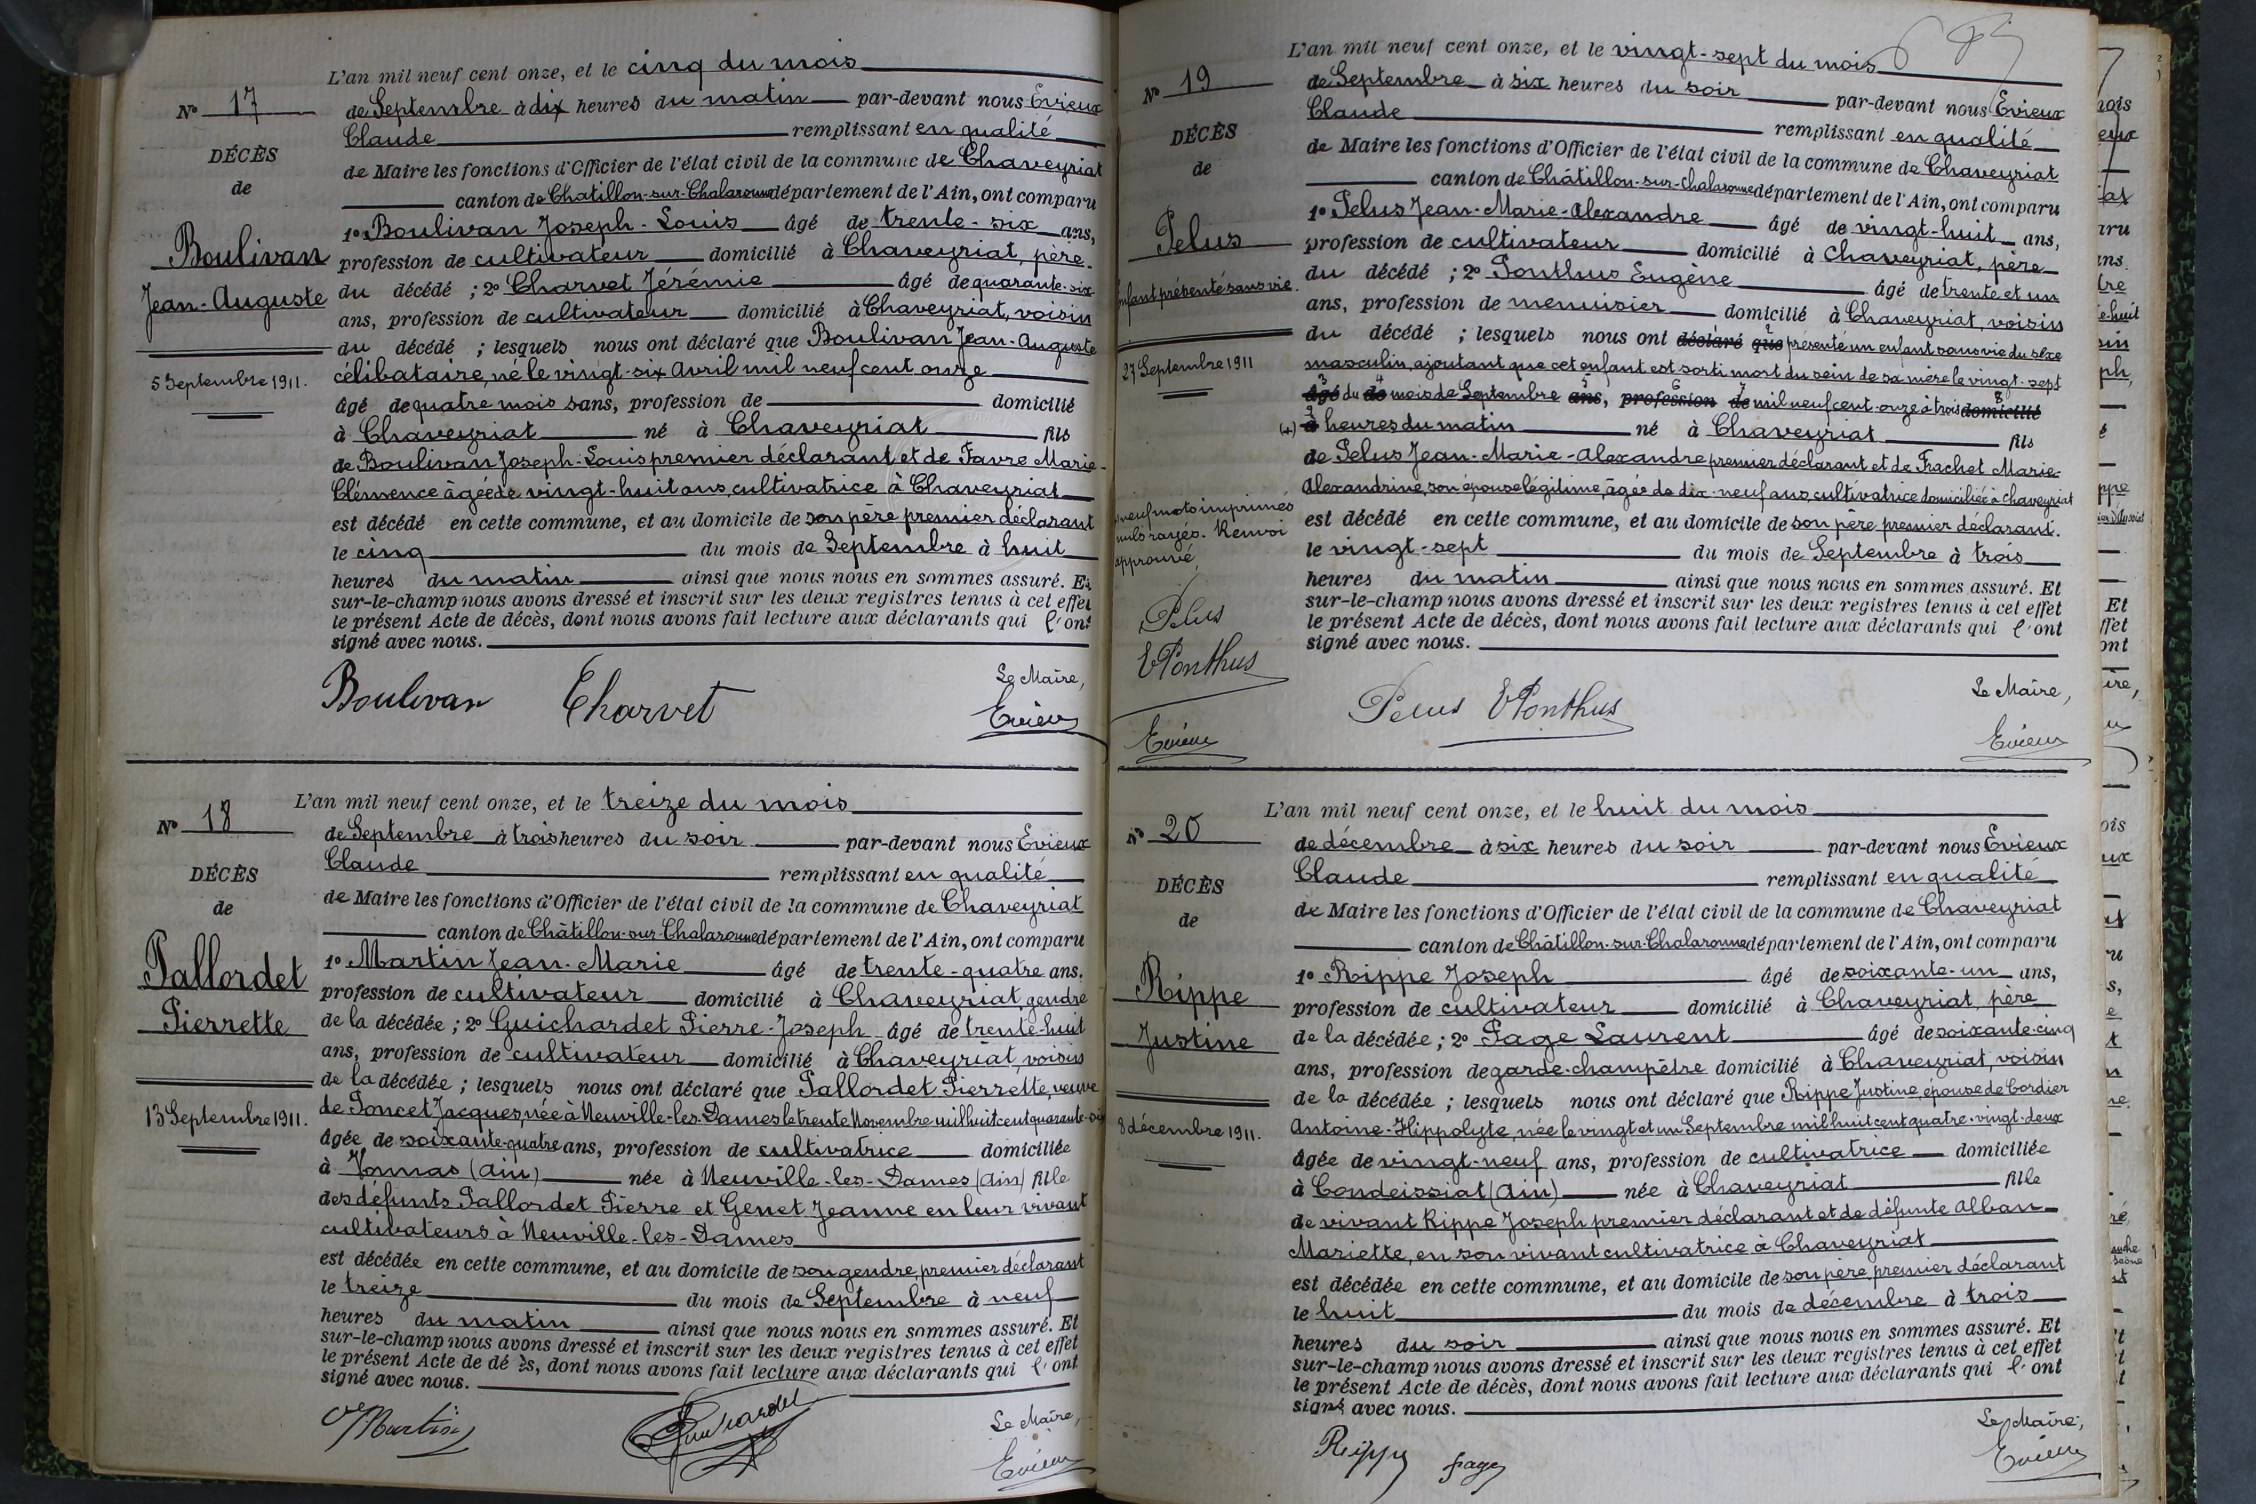 L'an mil neuf cent onze, et le cinq du mois
No 17
de Septembre à dix heures du matin par-devant nous Evieux
Claude remplissant en qualité
DÉCÈS
de Maire les fonctions d'Officier de l'état civil de la commune de Chaveyriat
de
canton de Chatillon-sur-Chalaronne département de l'Ain, ont comparu
1º Boulivan Joseph-Louis âgé de trente-six ans,
Boulivan
profession de cultivateur domicilié à Chaveyriat, père
Jean-Auguste
du décédé ; 2º Charvet Jérémie âgé de quarante-six
ans, profession de cultivateur domicilié à Chaveyriat, voisin
du décédé ; lesquels nous ont déclaré que Boulivan Jean-Auguste
5 Septembre 1911.
célibataire, né le vingt-six Avril mil neuf cent onze
âgé de quatre mois sans, profession de domicilié
à Chaveyriat né à Chaveyriat fils
de Boulivan Joseph-Louis premier déclarant et de Favre Marie-
Clémence âgée de vingt-huit ans, cultivatrice à Chaveyriat
est décédé en cette commune, et au domicile de son père premier déclarant
le cinq du mois de Septembre à huit
heures du matin ainsi que nous nous en sommes assuré. Et
sur-le-champ nous avons dressé et inscrit sur les deux registres tenus à cet effet
le présent Acte de décès, dont nous avons fait lecture aux déclarants qui l'ont
signé avec nous.
Le Maire,
Boulivan Charvet Evieux
L'an mil neuf cent onze, et le treize du mois
No 18
de Septembre à trois heures du soir par-devant nous Evieux
Claude remplissant en qualité
DÉCÈS
de Maire les fonctions d'Officier de l'état civil de la commune de Chaveyriat
de
canton de Châtillon-sur-Chalaronne département de l'Ain, ont comparu
Pallordet
1º Martin Jean-Marie âgé de trente-quatre ans,
profession de cultivateur domicilié à Chaveyriat, gendre
Pierrette
de la décédée ; 2º Guichardet Pierre-Joseph âgé de trente-huit
ans, profession de cultivateur domicilié à Chaveyriat, voisin
de la décédée ; lesquels nous ont déclaré que Pallordet Pierrette, veuve
13 Septembre 1911.
de Poncet Jacques, née à Neuville-les-Dames le trente Novembre mil huit cent quarante-six
âgée de soixante-quatre ans, profession de cultivatrice domiciliée
à Vonnas (Ain) née à Neuville-les-Dames (Ain) fille
des défunts Pallordet Pierre et Genet Jeanne en leur vivant
cultivateurs à Neuville-les-Dames
est décédée en cette commune, et au domicile de son gendre, premier déclarant
le treize du mois de Septembre à neuf
heures du matin ainsi que nous nous en sommes assuré. Et
sur-le-champ nous avons dressé et inscrit sur les deux registres tenus à cet effet
le présent Acte de dé ès, dont nous avons fait lecture aux déclarants qui l'ont
signé avec nous.
Le Maire,
Martin Guichardet Evieux
L'an mil neuf cent onze, et le vingt-sept du mois
No 19
de Septembre à six heures du soir par-devant nous Evieux
Claude remplissant en qualité
DÉCÈS
de Maire les fonctions d'Officier de l'état civil de la commune de Chaveyriat
de
canton de Châtillon-sur-Chalaronne département de l'Ain, ont comparu
1º Pelus Jean-Marie-Alexandre âgé de vingt-huit ans,
Pelus
profession de cultivateur domicilié à Chaveyriat, père
enfant présenté sans vie.
du décédé ; 2º Ponthus Eugène âgé de trente et un
ans, profession de menuisier domicilié à Chaveyriat, voisin
du décédé ; lesquels nous ont déclaré que présenté un enfant sans vie du sexe
27 Septembre 1911
masculin, ajoutant que cet enfant est sorti mort du sein de sa mère le vingt-sept
âgé du de mois de Septembre ans, profession de mil neuf cent onze à trois domicilié
(+) à heures du matin né à Chaveyriat fils
de Pelus Jean-Marie-Alexandre premier déclarant et de Frachet Marie-
Alexandrine, son épouse légitime, âgée de dix-neuf ans, cultivatrice domiciliée à Chaveyriat
neuf mots imprimés
nuls rayés. Renvoi
approuvé,
est décédé en cette commune, et au domicile de son père, premier déclarant.
le vingt-sept du mois de Septembre à trois
heures du matin ainsi que nous nous en sommes assuré. Et
sur-le-champ nous avons dressé et inscrit sur les deux registres tenus à cet effet
le présent Acte de décès, dont nous avons fait lecture aux déclarants qui l'ont
signé avec nous.
Pelus
E Ponthus
Evieux
Le Maire,
Pelus E Ponthus Evieux
L'an mil neuf cent onze, et le huit du mois
No 20
de décembre à six heures du soir par-devant nous Evieux
Claude remplissant en qualité
DÉCÈS
de Maire les fonctions d'Officier de l'état civil de la commune de Chaveyriat
de
canton de Châtillon-sur-Chalaronne département de l'Ain, ont comparu
Rippe
1º Rippe Joseph âgé de soixante-un ans,
profession de cultivateur domicilié à Chaveyriat, père
Justine
de la décédée ; 2º Page Laurent âgé de soixante-cinq
ans, profession de garde-champêtre domicilié à Chaveyriat, voisin
de la décédée ; lesquels nous ont déclaré que Rippe Justine, épouse de Cordier
8 décembre 1911.
Antoine-Hippolyte, née le vingt et un Septembre mil huit cent quatre-vingt-deux
âgée de vingt-neuf ans, profession de cultivatrice domiciliée
à Condeissiat (Ain) née à Chaveyriat fille
de vivant Rippe Joseph premier déclarant et de défunte Alban
Mariette, en son vivant cultivatrice à Chaveyriat
est décédée en cette commune, et au domicile de son père, premier déclarant
le huit du mois de décembre à trois
heures du soir ainsi que nous nous en sommes assuré. Et
sur-le-champ nous avons dressé et inscrit sur les deux registres tenus à cet effet
le présent Acte de décès, dont nous avons fait lecture aux déclarants qui l'ont
signé avec nous.
Le Maire,
Rippe Page Evieux